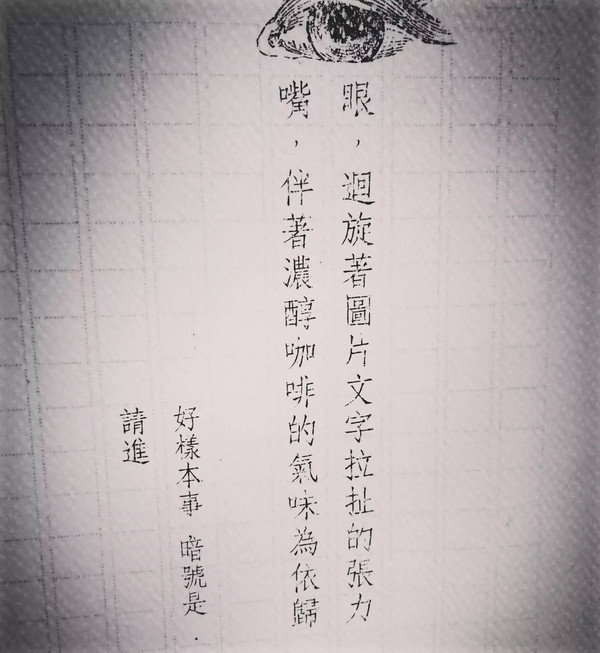 眼，迴旋著圖片文字拉扯的張力
嘴，伴著濃醇咖啡的氣味為依歸
好樣本事 暗號是．
請進